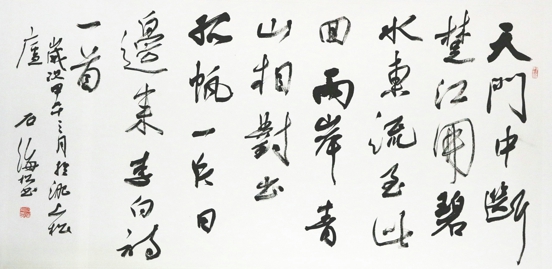 天門中斷
楚江開碧
水東流至此
回兩岸青
山相對出
孤帆一片日
邊來李白詩
一首
歲次甲午三月於洮上松
廬 石海松書